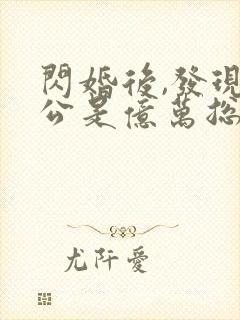 閃婚後,發現
公是億萬総
尤阡愛